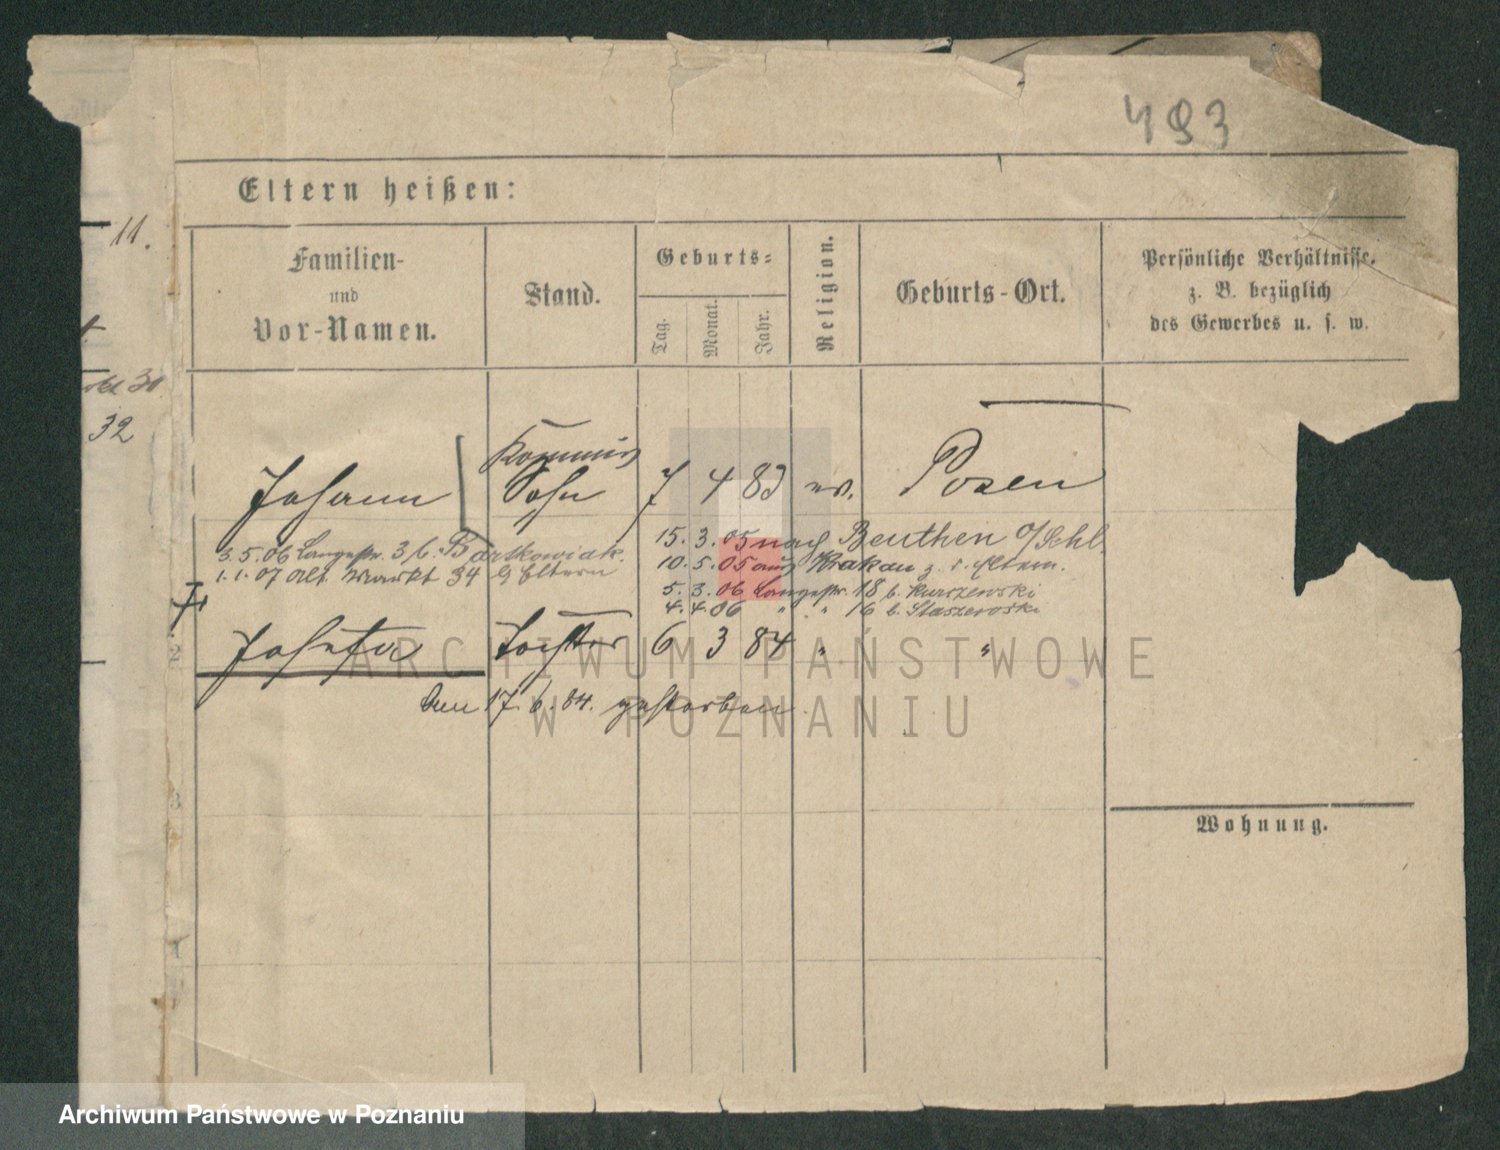 493
Eltern heißen:
11.
Familien-
und
Vor-Namen.
Stand.
Geburts-
Tag.
Monat.
Jahr.
Religion.
Geburts-Ort.
Persönliche Verhältnisse.
z. B. bezüglich
des Gewerbes u. s. w.
30
32
Kommis
Johann Sohn 7 4 83 Posen
15. 3. 05 nach Beuthen O/Schl.
3. 5. 06 Langestr. 3 b. Bartkowiak.
10. 5. 05 aus Krakau z. d. Eltern.
1. 1. 07 Alt. Markt 34 Eltern
5. 3. 06 Langestr. 18 b. Kurszewski
4. 4. 06 " " 16 b. Staszewski
Josefa Tochter 6 3 84 " "
den 17. 6. 84. gestorben.
ARCHIWUM PAŃSTWOWE
W POZNANIU
Wohnung.
Archiwum Państwowe w Poznaniu